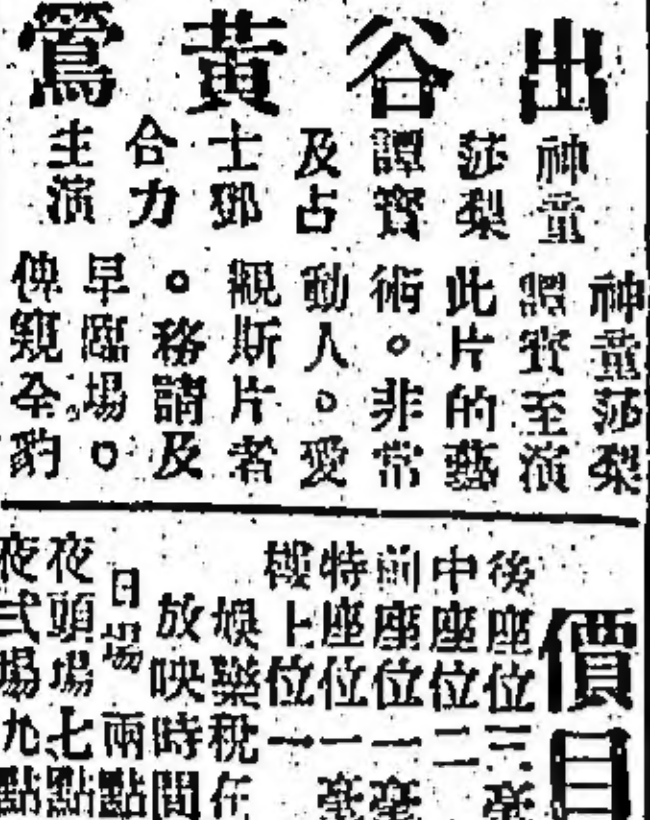 出谷黃鶯
神童
莎梨
譚寶
及占
士鄧
合力
主演
神童莎梨
譚寶至演
此片的藝
術。非常
動人。愛
觀斯片者
。務請及
早臨場。
俾窺全豹
價目
後座位三毫
中座位二
前座位一毫
特座位一毫
樓上位一
娛樂稅在
放映時間
日場兩點
夜頭場七點
夜弍場九點